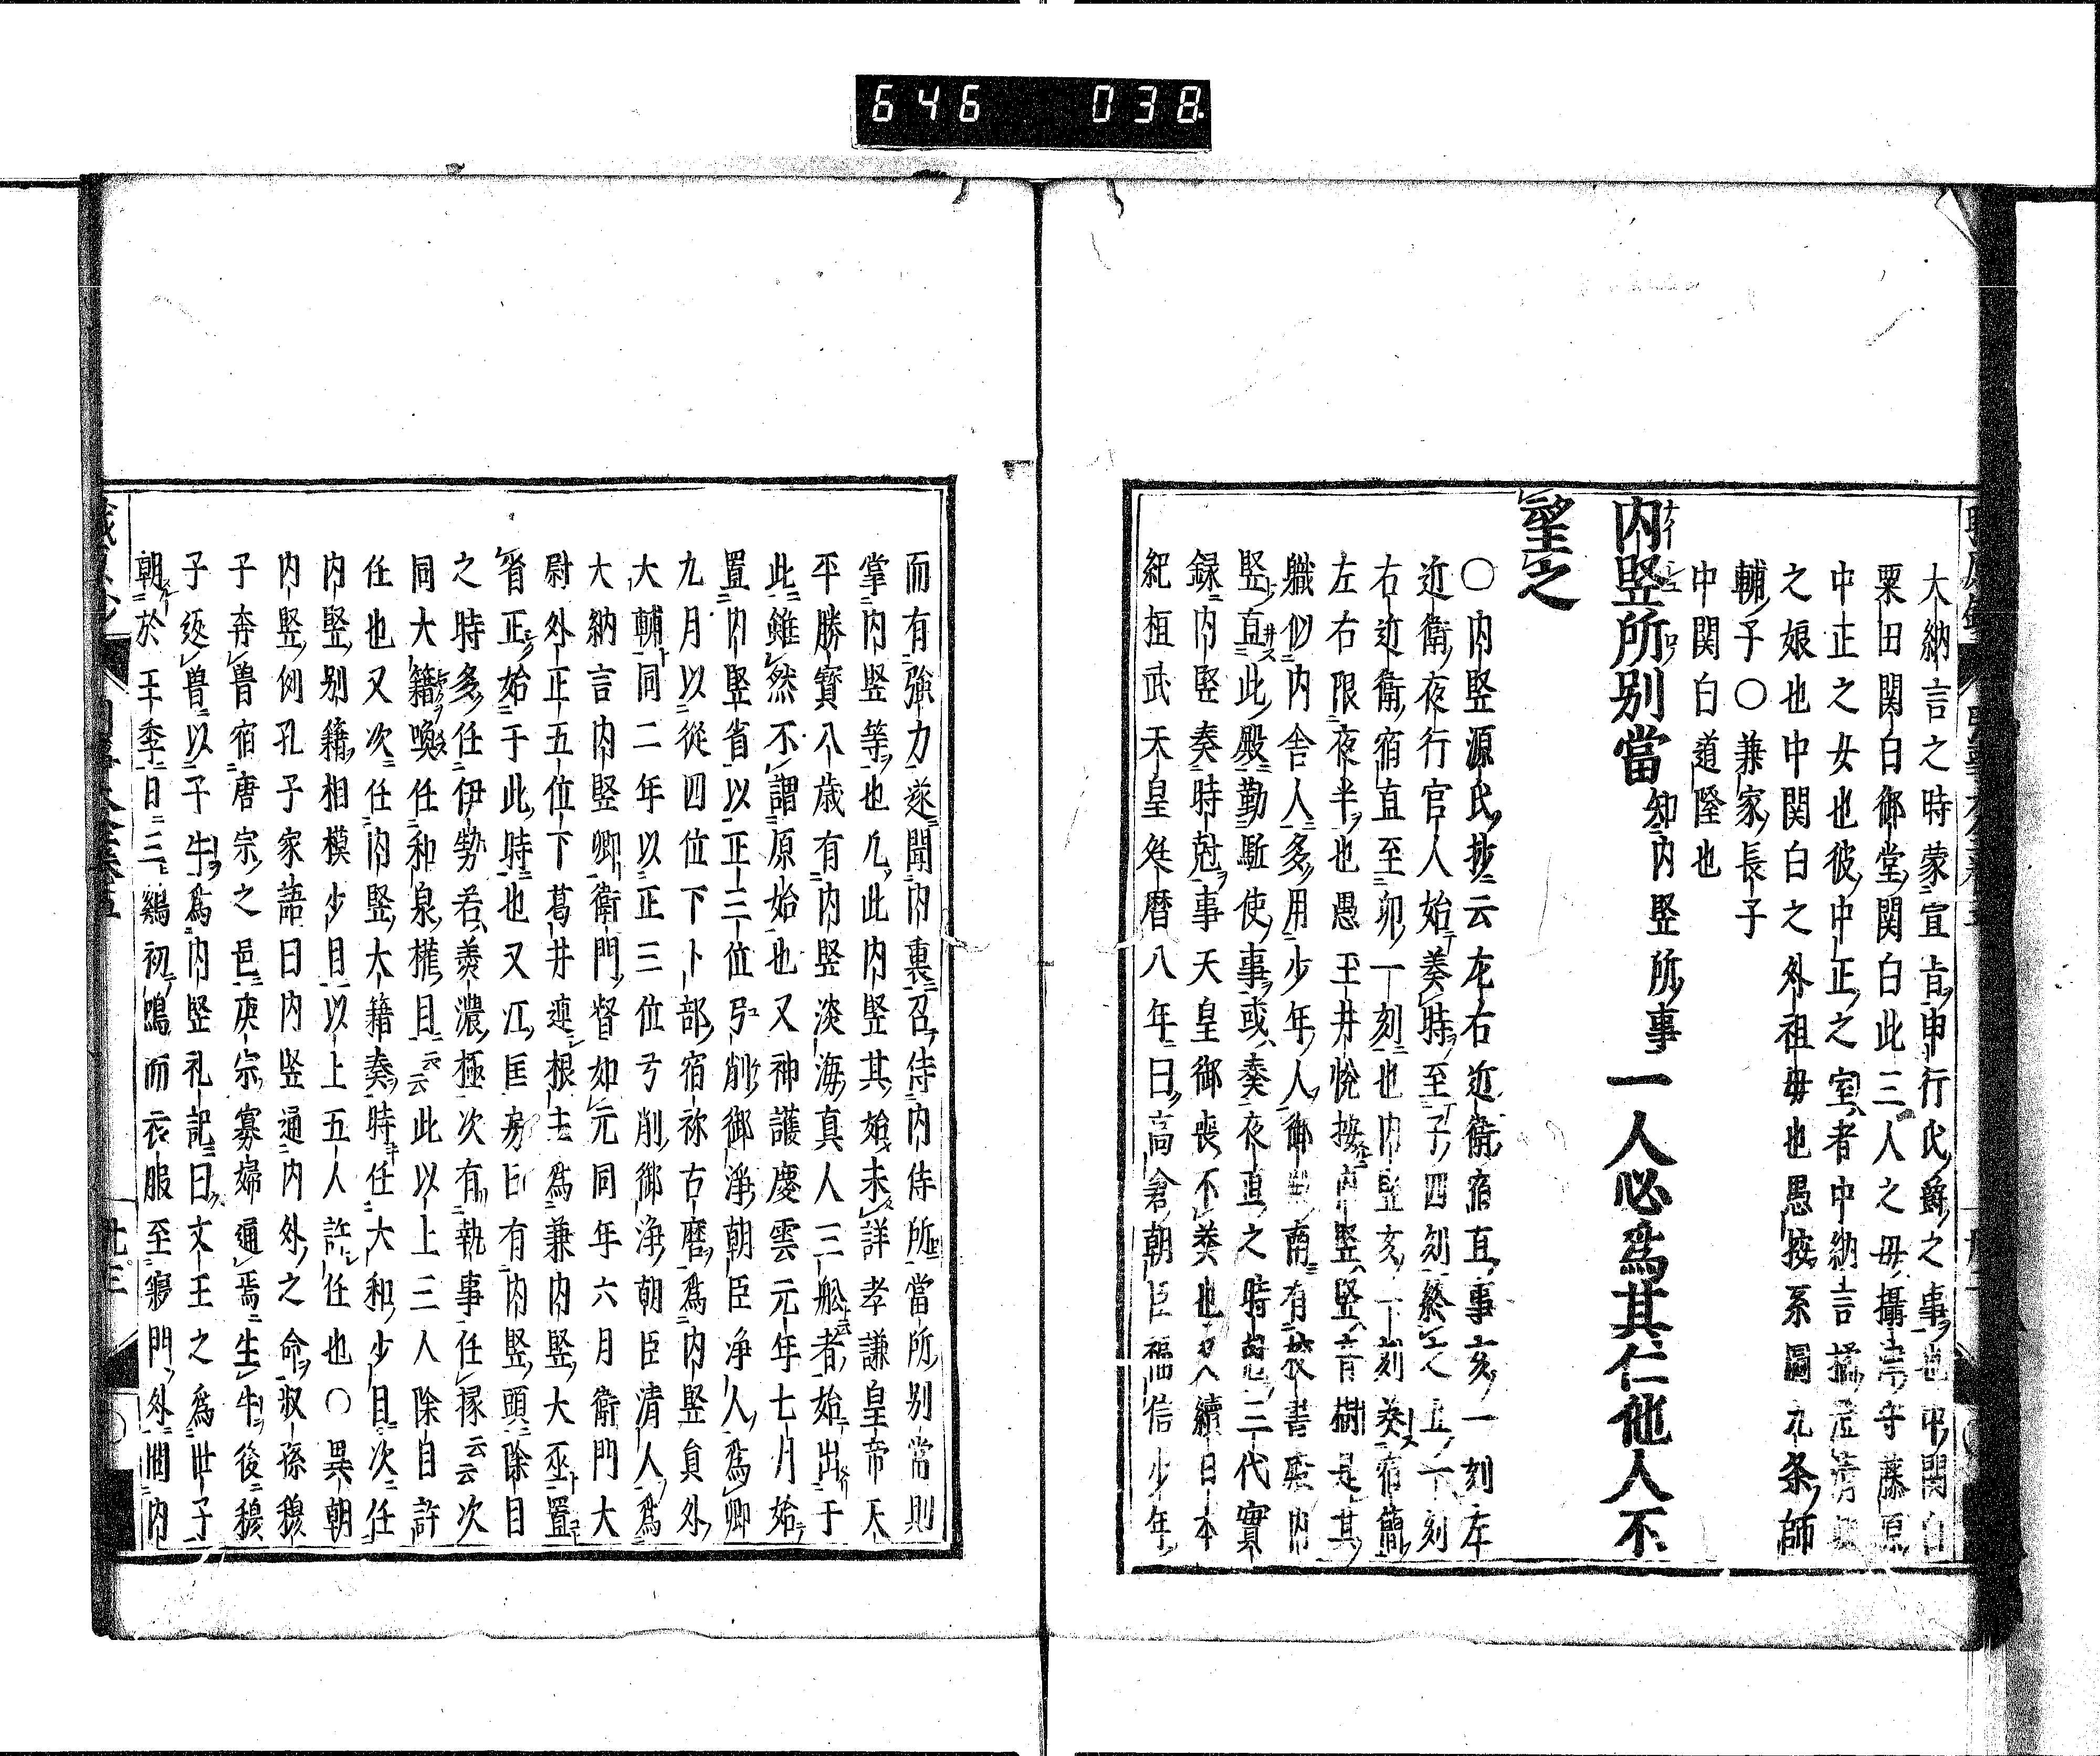 646 038
大納言之時蒙宣旨申行氏爵之事也中関白
粟田関白御堂関白此三人之母攝守藤原
中正之女也彼中正之室者中納言橘澄清
之娘也中関白之外祖母也愚按系圖九条師
輔子〇兼家長子
中関白道隆也
内竪所別當知内竪所事一人必爲其仁他人不
望之
〇内竪源氏抄云左右近衛宿直事亥一刻左
近衛夜行官人始奏時至子四刻終之丑一刻
右近衛宿直至卯一刻也内竪亥一刻奏宿簡
左右限夜半也愚玉井悦按内竪竪育樹是其
職似内舎人多用少年人御南有校書殿内
竪直此殿勤駈使事或奏夜直之時尅三代實
録内竪奏時尅事天皇御喪不奏也又續日本
紀桓武天皇延暦八年曰高倉朝臣福信少年
而有強力遂聞内裏召侍内侍所當所別當則
掌内竪等也凡此内竪其始未詳孝謙皇帝天
平勝寳八歳有内竪淡海真人三舩者始出于
此雖然不謂原始也又神護慶雲元年七月始
置内竪省以正三位弓削御淨朝臣淨人爲卿
九月以從四位下卜部宿祢古麿爲内竪員外
大輔同二年以正三位弓削御淨朝臣清人爲
大納言内竪卿衛門督如元同年六月衛門大
尉外正五位下葛井連根主爲兼内竪大丞置
省正始于此時也又江匡房曰有内竪頭除目
之時多任伊勢若美濃極次有執事任掾云云次
同大籍喚任和泉權目云云此以上三人除自許
任也又次任内竪大籍奏時任大和少目次任
内竪別籍相模少目以上五人許任也〇異朝
内竪例孔子家語曰内竪通内外之命叔孫穆
子奔魯宿唐宗之邑庚宗寡婦通焉生牛後穆
子返魯以子牛爲内竪礼記曰文王之爲世子
朝於王季日三鷄初鳴而衣服至寝門外問内